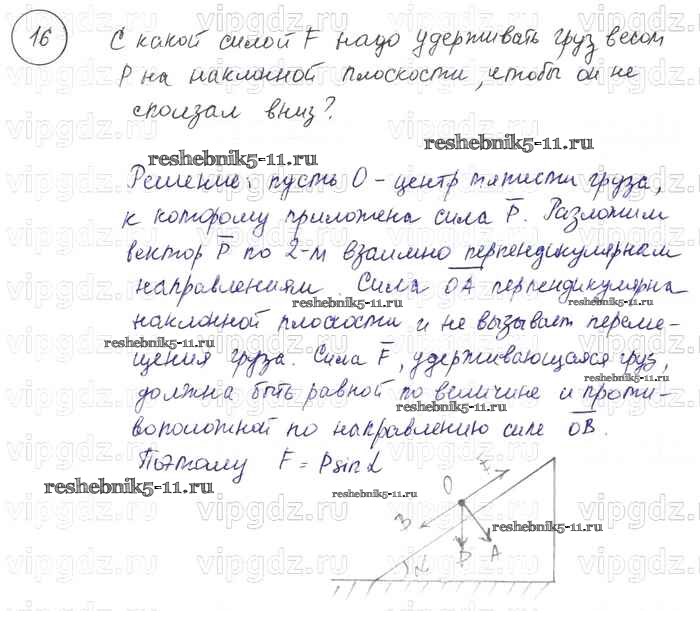 16
С какой силой F надо удерживать груз весом
P на наклонной плоскости, чтобы он не
сползал вниз?
reshebnik5-11.ru
reshebnik5-11.ru
Решение: пусть O - центр тяжести груза,
к которому приложена сила P̅. Разложим
вектор P̅ по 2-м взаимно перпендикулярным
направлениям. Сила O̅A̅ перпендикулярна
reshebnik5-11.ru
reshebnik5-11.ru
наклонной плоскости и не вызывает переме-
reshebnik5-11.ru
щения груза. Сила F̅, удерживающаяся груз,
reshebnik5-11.ru
должна быть равной по величине и проти-
reshebnik5-11.ru
воположной по направлению силе O̅B̅.
Поэтому F = P sin α
reshebnik5-11.ru
reshebnik5-11.ru
O
B
reshebnik5-11.ru
A
α
vipgdz.ru